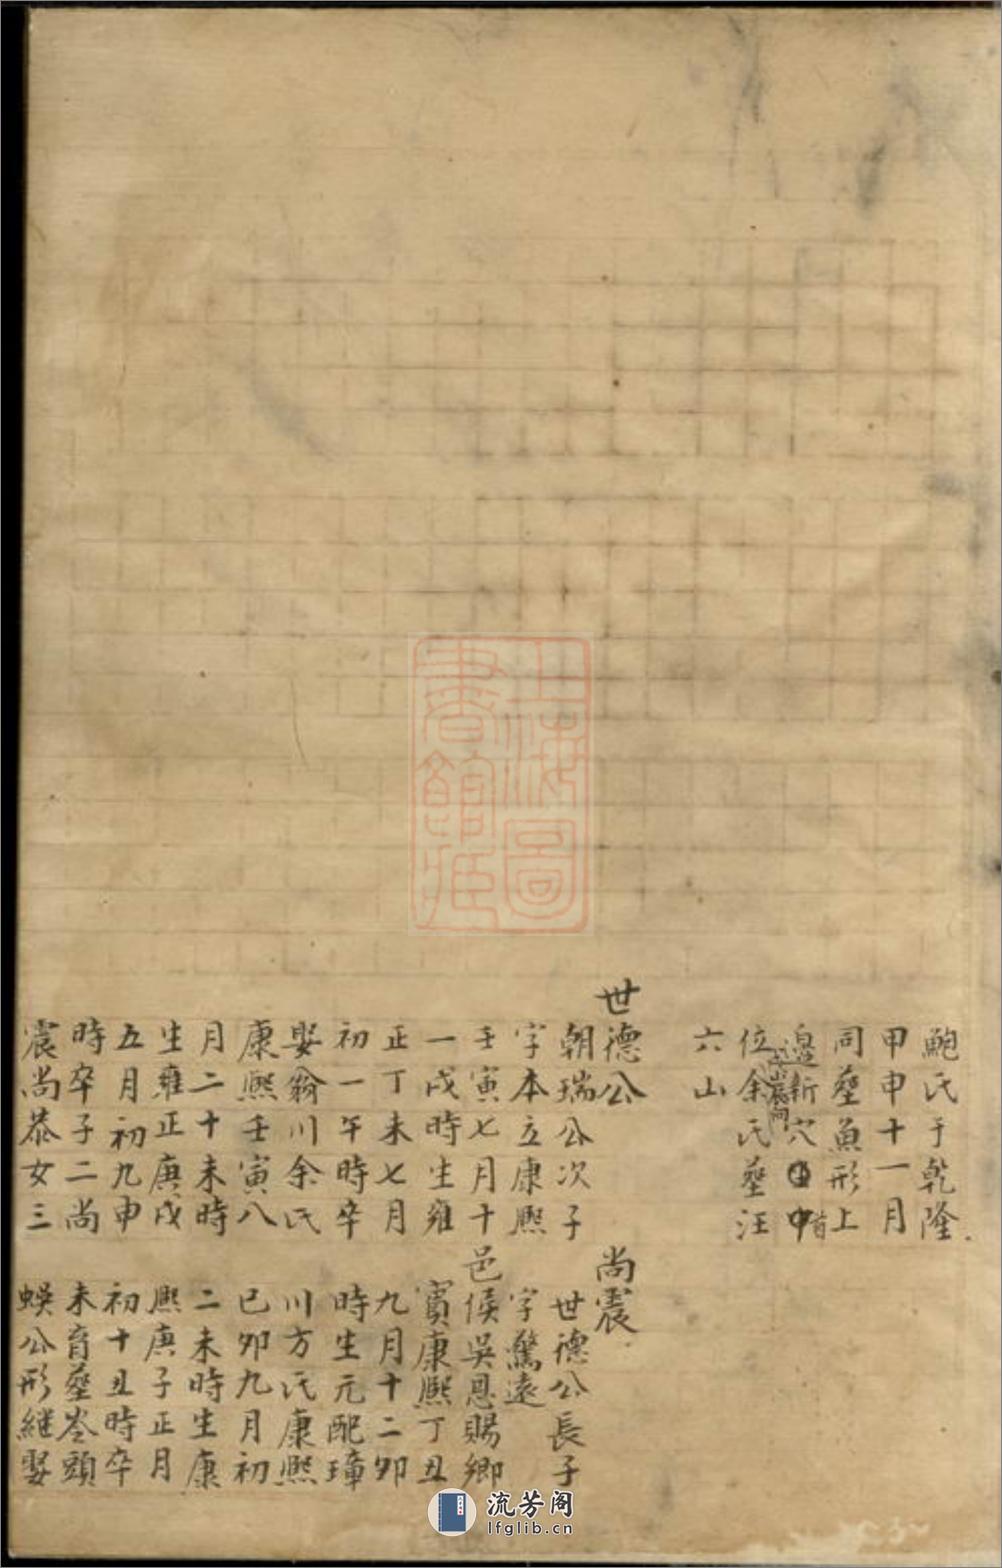 鮑氏于乾隆
甲申十一月
同塟魚形上
邊新穴中
位余氏塟汪
六山
世德公
朝瑞公次子
字本立康熙
壬寅七月十
一戌時生雍
正丁未七月
初一午時卒
娶豣川余氏
康熙壬寅八
月二十未時
生雍正庚戌
五月初九申
時卒子二尚
震尚恭女三
尚震
世德公長子
字驚遠
邑侯吳恩賜鄉
賓康熙丁丑
九月十二卯
時生元配璋
川方氏康熙
已卯九月初
二未時生康
熙庚子正月
初十丑時卒
未育塟岺頭
蜈公形継娶
上海圖
書館藏
流芳阁
lfglib.cn